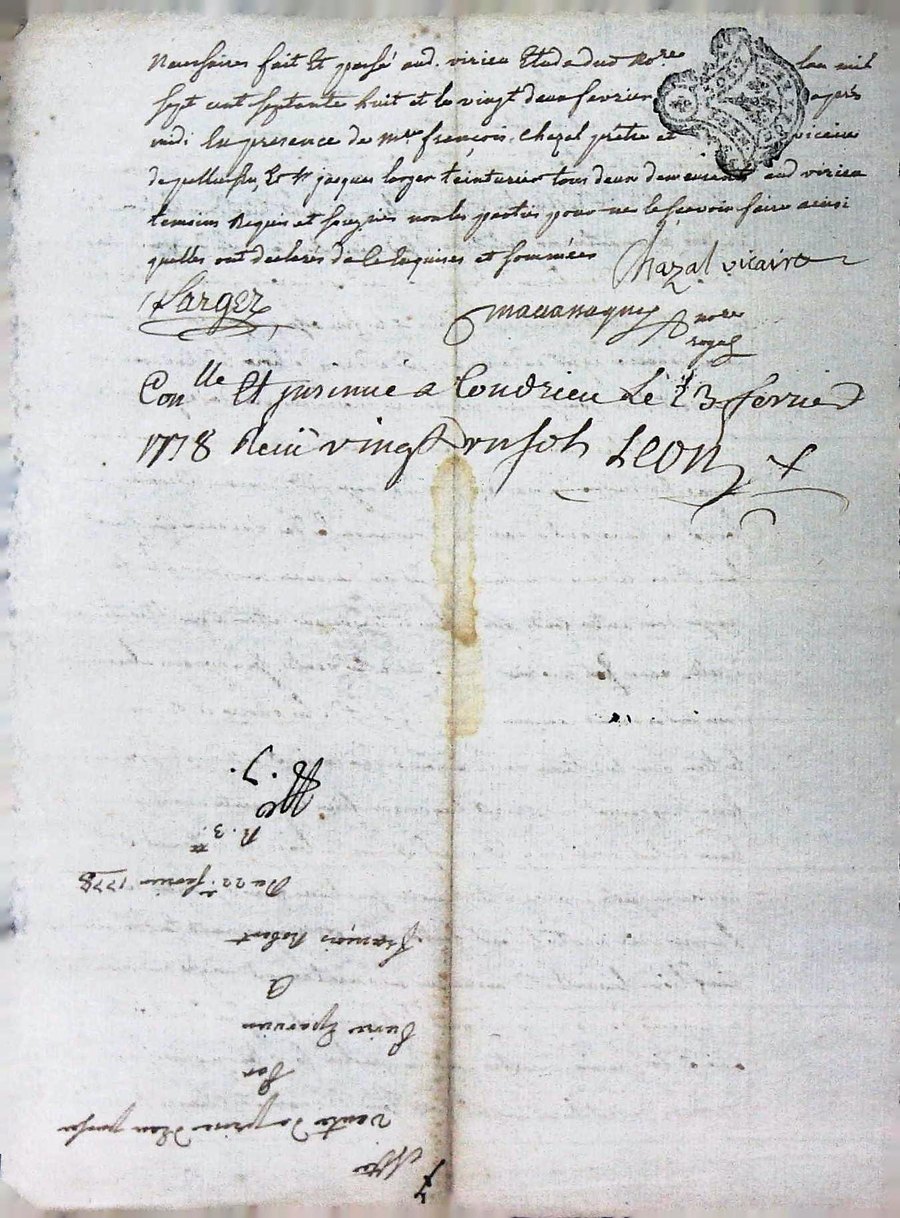 Necessaires fait et passé aud. virieu Etude dud no.re l'an mil
sept cent septante huit et le vingt deux fevrier après
midi En presence de m.re françois Chazal prêtre et vicaire
de pellussin, et s.r jacques larger teinturier tous deux demeurants aud virieu
temoins Requis et soussignés non les parties pour ne le sçavoir faire ainsi
quelles ont declarés de ce Enquises et sommées Chazal vicaire
Larger
no.re
royal
Con.lle Et jnsinué a Condrieu Le 23 fevrier
1778 Reçu vingt un sols Leon
vente
Par
Pierre
A
François Robert
Du 22.e fevrier 1778
n. 3.